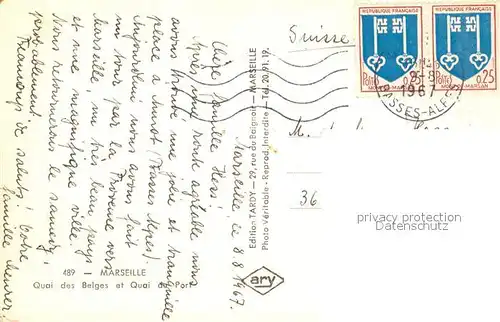 Marseille, le 8.8.1967.
Chère famille Hess!
Après une route agréable nous
avons trouvé une jolie et tranquille
place à Annot (Basses Alpes).
Aujourd'hui nous avons fait
un tour par la Provence vers
Marseille un très beau pays
et une magnifique ville.
Nous retournerons le samedi
probablement.
Beaucoup de saluts! Votre
famille
489 | MARSEILLE
Quai des Belges et Quai du Port
Edition TARDY - 29, rue du Baignoir - MARSEILLE
Photo Véritable - Reprod. Interdite - Tél. 20.91.19.
ary
Suisse
REPUBLIQUE FRANÇAISE
POSTES
0,25
MONT-DE-MARSAN
REPUBLIQUE FRANÇAISE
POSTES
0,25
MONT-DE-MARSAN
1967
BASSES-ALPES
36
privacy protection
AnsichtskartenVersand.com